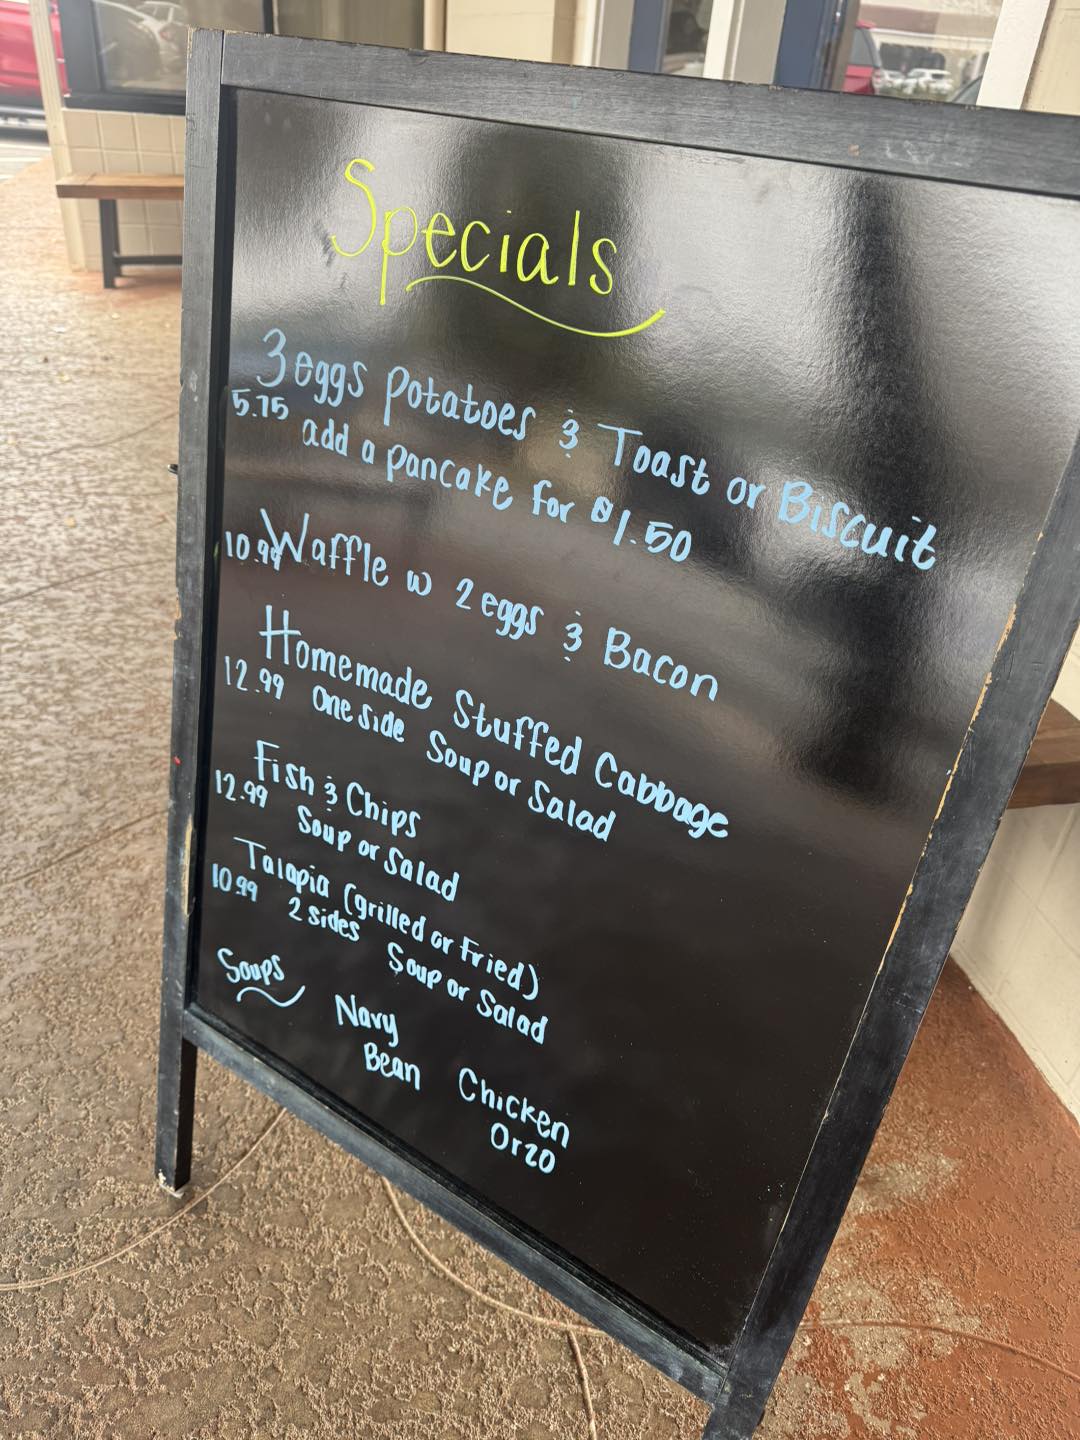 Specials
3 eggs potatoes & Toast or Biscuit
5.75 add a pancake for $1.50
10.99 Waffle w 2 eggs & Bacon
Homemade Stuffed Cabbage
12.99 One side Soup or Salad
Fish & Chips
12.99 Soup or Salad
Talapia (grilled or Fried)
10.99 2 sides Soup or Salad
Soups
Navy
Bean
Chicken
Orzo